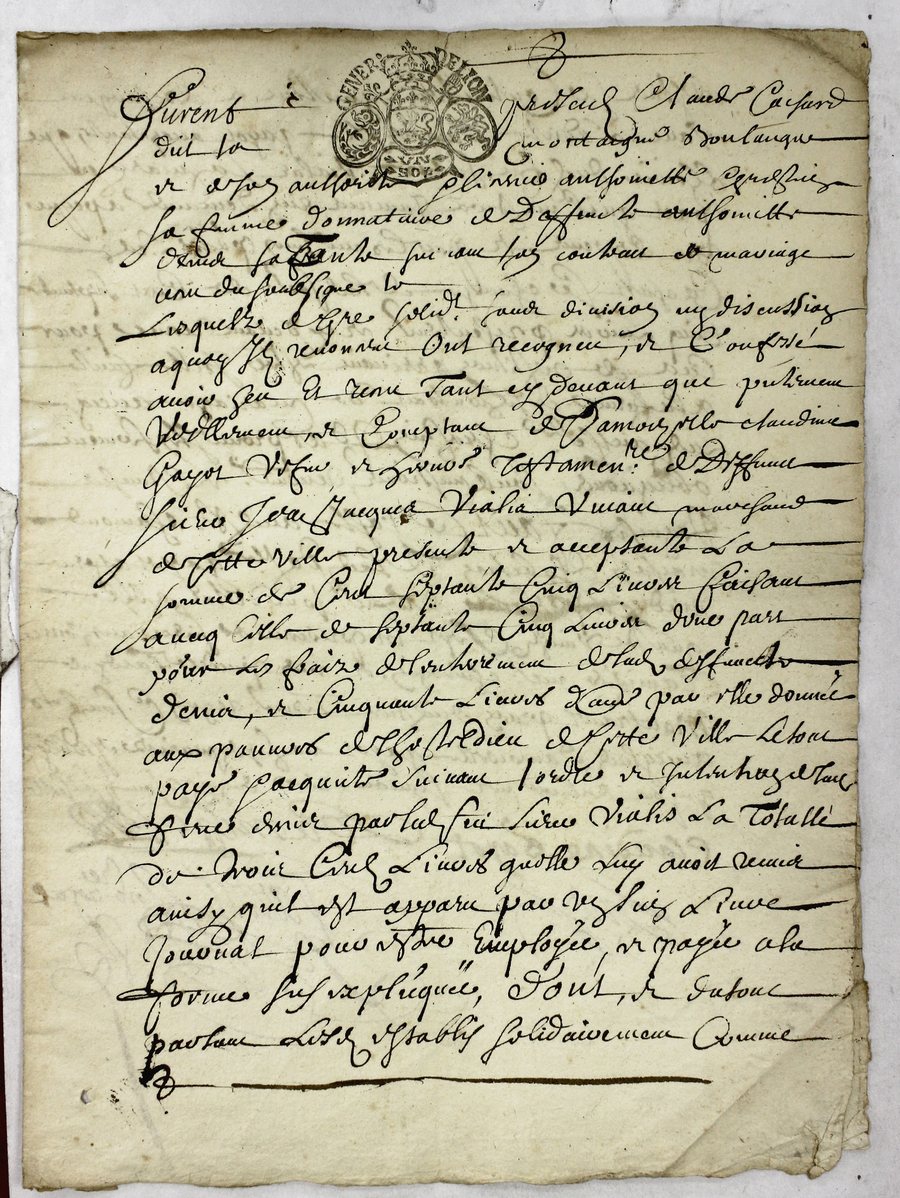 GENER. DE LYON
UN SOL
Furent présens Claude Cachard
dit la montaigne Boulangue
et de son authorité Anthoinette
sa femme donnataire de Deffuncte Anthoinette
sa Tante suivant son contract de mariage
receu du soubsigné
Lesquelz de gré solidt. sans division ny discussion
a quoy ilz renoncent Ont recogneu, et Confessé
avoir heu Et receu Tant cy devant que présentement
Reellement, et Comptant de Damoizelle Claudine
Gayot Vefve et heritiere Testamentre. de Deffunct
sieur Jean Jacques Vialis Vivant marchand
de Cette Ville presente et acceptante La
somme de Cent septante Cinq Livres faisant
avecq Celle de septante Cinq Livres d'une part
pour Les fraiz de l'enterrement de lad. deffuncte
et Cinquante Livres d'autre par elle donnée
aux pauvres de l'hosteldieu de Cette Ville Le tout
payé Suivant l'ordre et Intention de lad.
par led. feu sieur Vialis La Totalle
de Trois Cent Livres qu'elle Luy avoit remis
ainsy qu'il est apparu par Livre
Journal pour estre Employée, et payée a la
forme sus expliquée, Dont, et du tout
partant Lesd. establis solidairement Comme